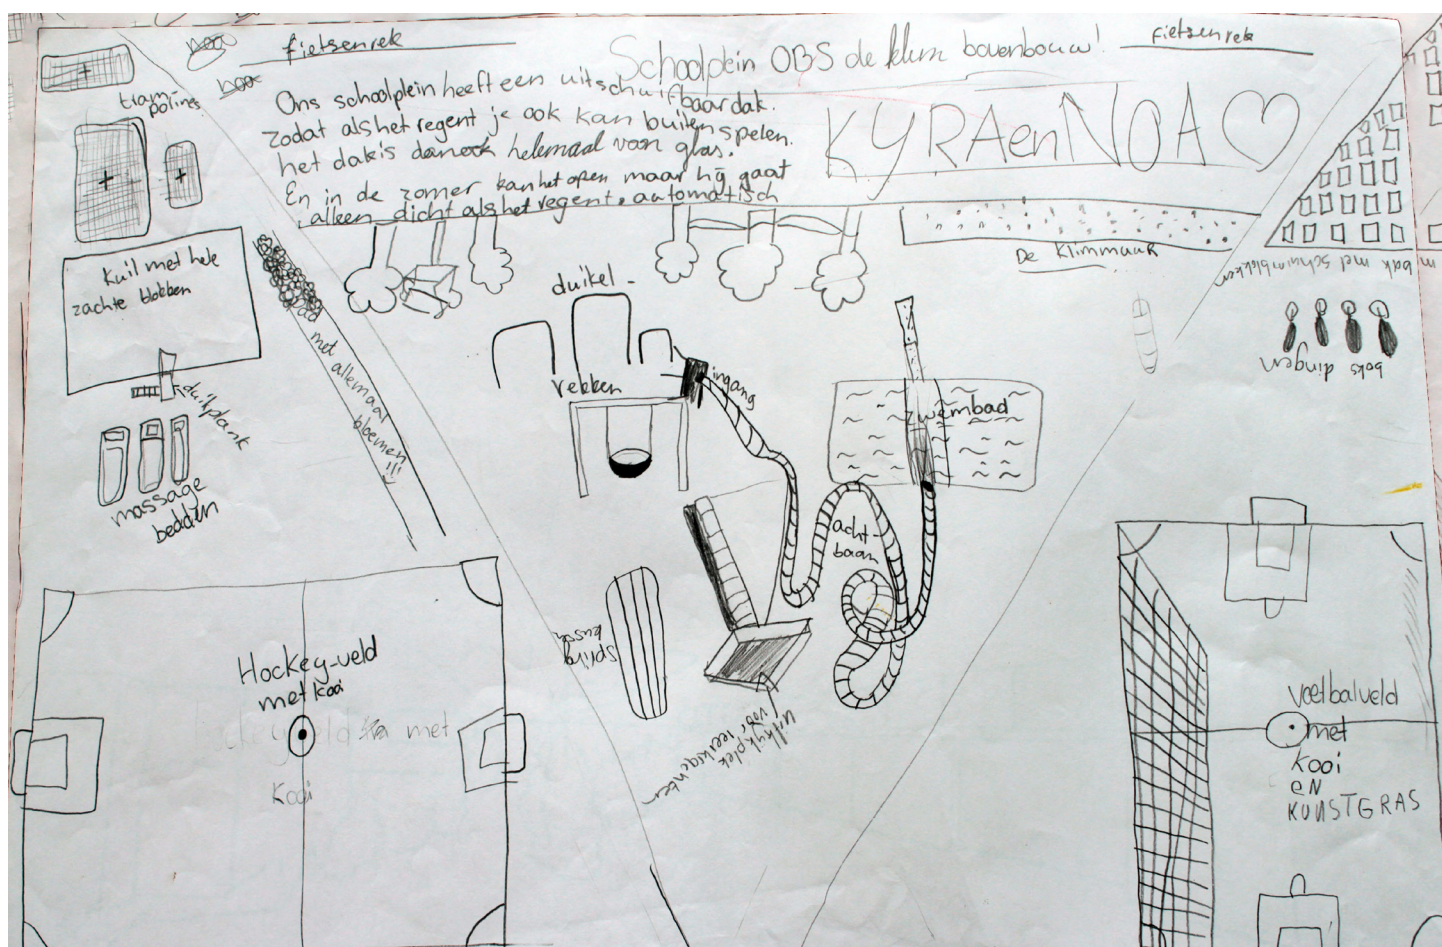 fietsenrek
Schoolplein OBS de klim bovenbouw!
fietsenrek
tram-
polines
Ons schoolplein heeft een uitschuifbaar dak.
zodat als het regent je ook kan buiten spelen.
het dak is helemaal van glas.
En in de zomer kan het open maar hij gaat
alleen dicht als het regent. automatisch
KYRA en NOA
Kuil met hele
zachte blokken
duikplank
massage
bedden
pad met allemaal
bloemen!!!
duikel-
rekken
ingang
De Klimmuur
bak met schuimblokken
boks dingen
zwembad
acht-
baan
spring
kussen
uitkijkplek
voor leerkrachten
Hockey-veld
met kooi
Hockeyveld met
kooi
voetbalveld
met
kooi
EN
KUNSTGRAS